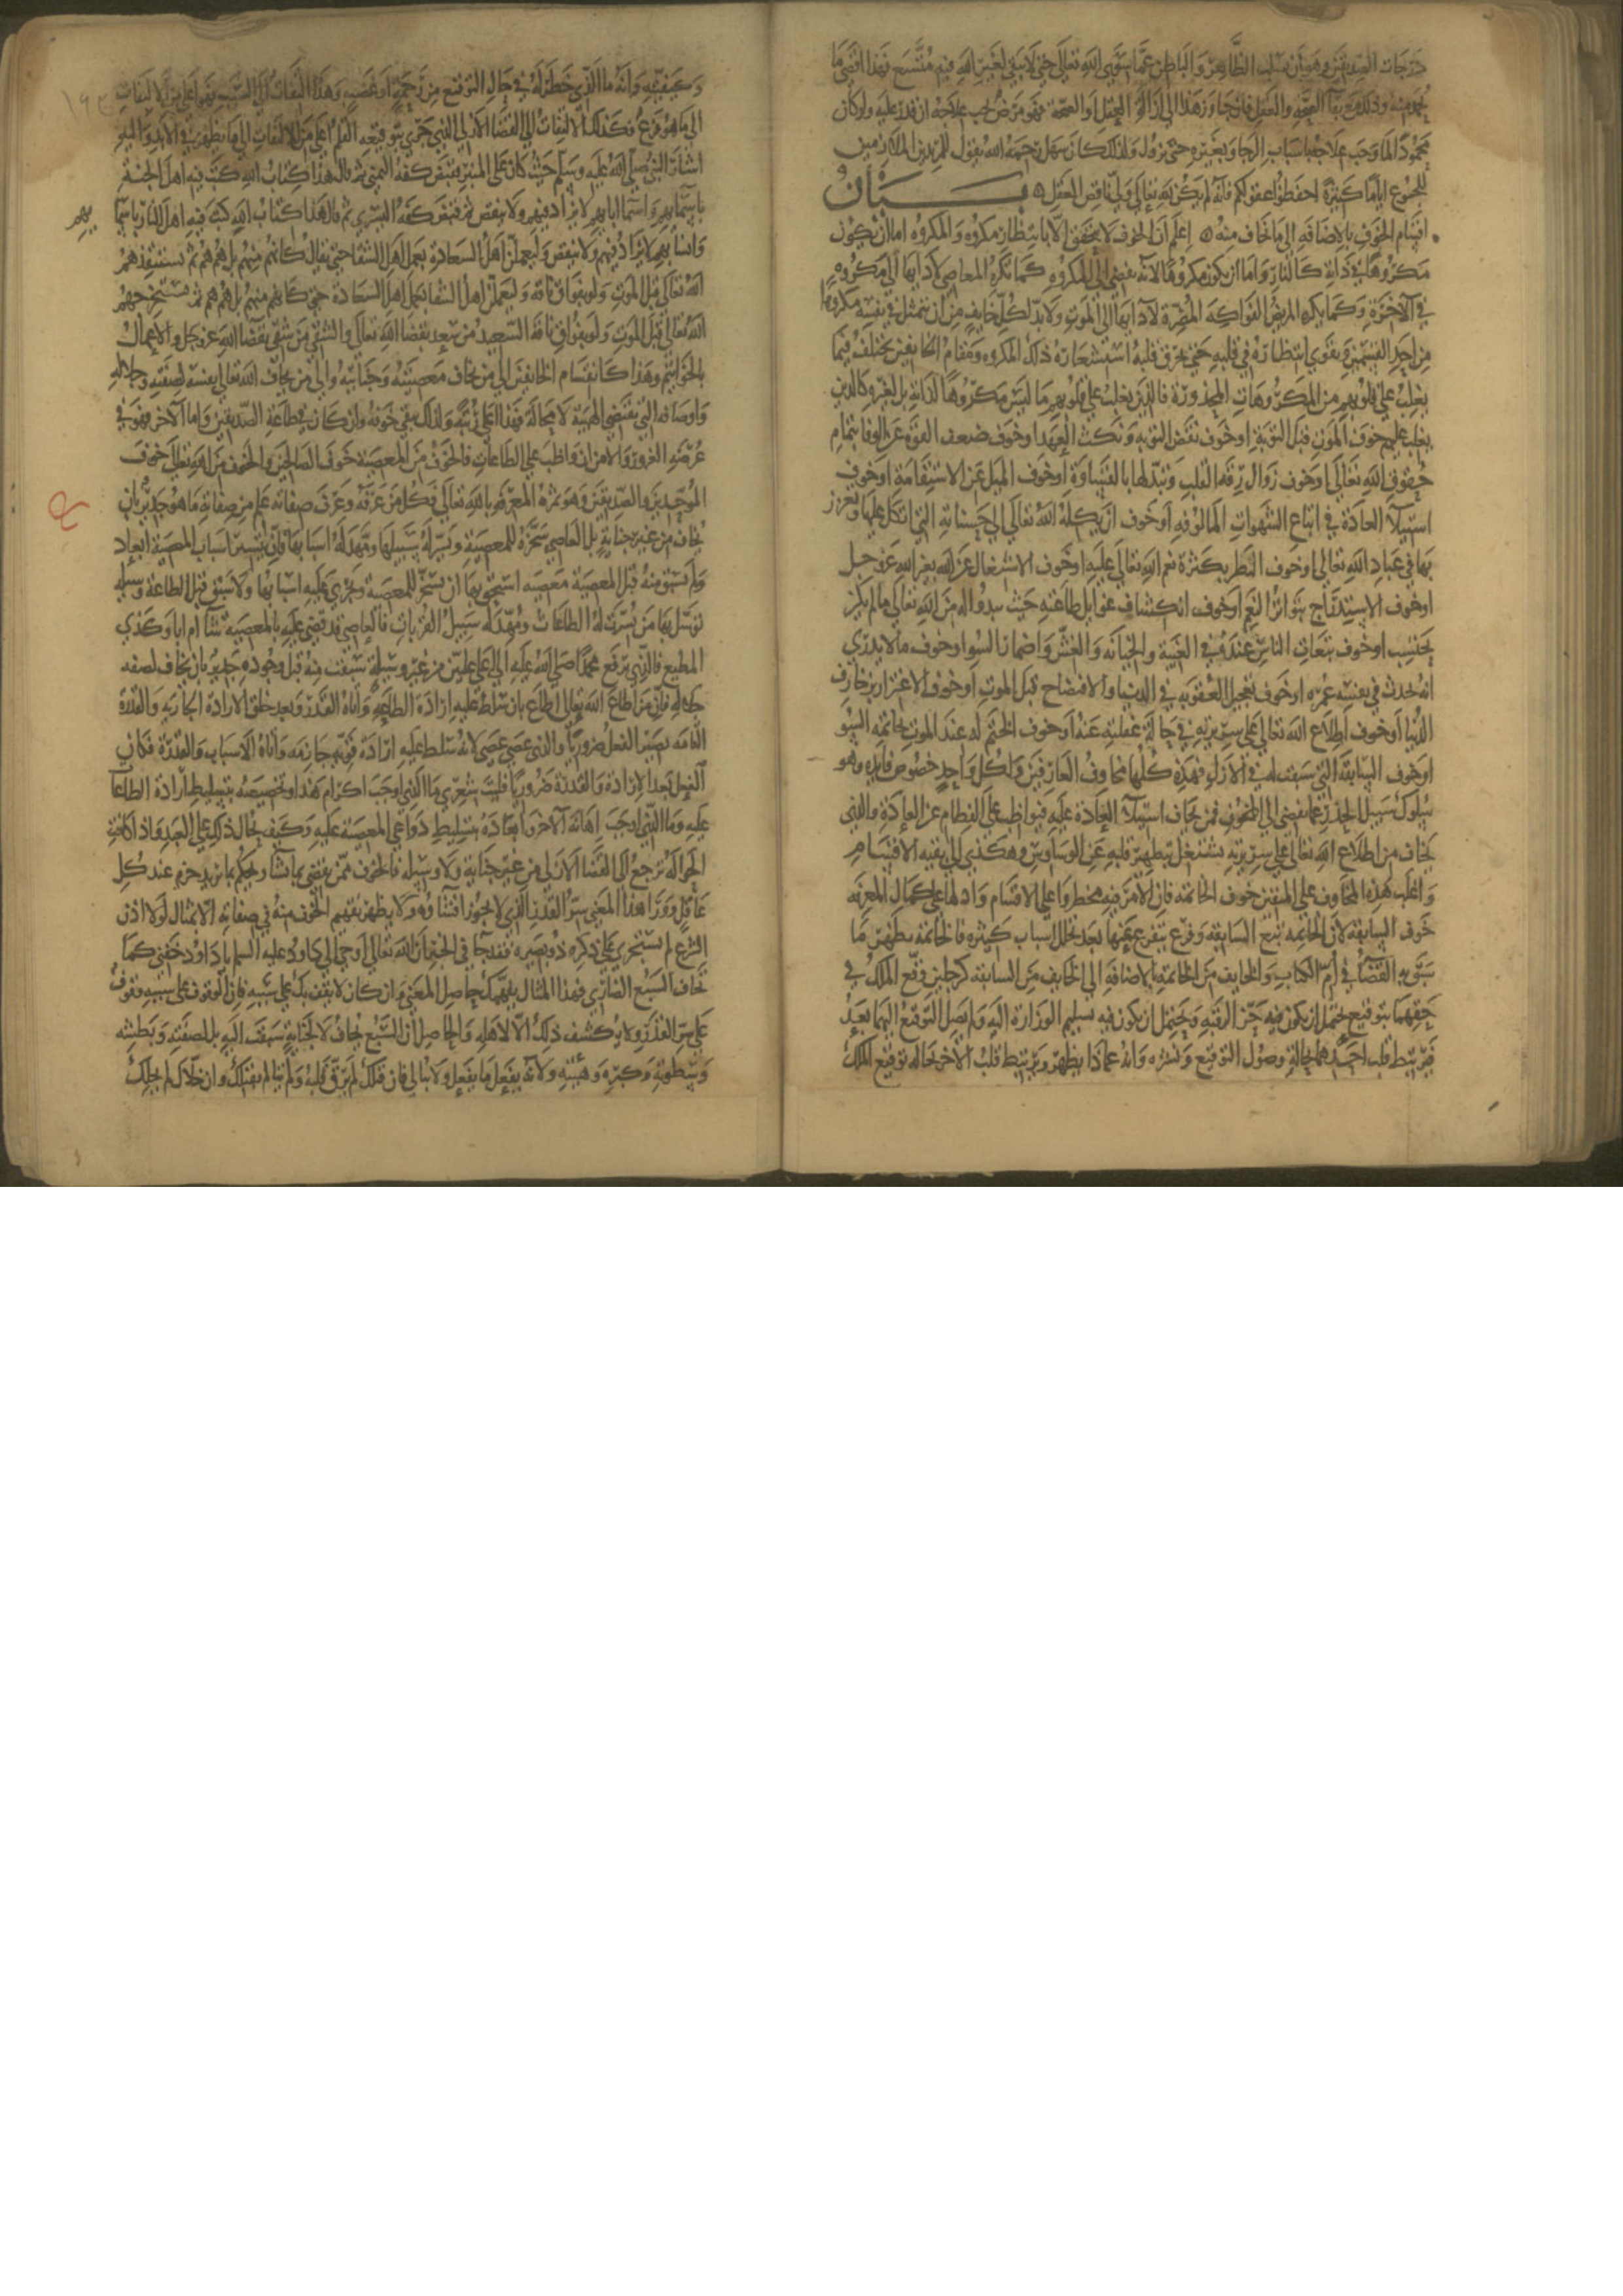 درجات الصديقين وهو أن يسلب الظاهر والباطن عما سوى الله تعالى حتى لا يبقى لغير الله فيه متسع فهذا اقصى ما
يحمد منه وذلك مع بقآ الصحة والعقل فان جاوز هذا الى ازالة العقل او الصحة فهو مرض يجب علاجه ان قدر عليه ولو كان
محمودا لما وجب علاجه باسباب الرجا وبغيره حتى يزول ولذلك كان سهل رحمه الله يقول للمريدين الملازمين
للجوع اياما كثيرة احفظوا عقولكم فانه لم يكن لله تعالى ولي ناقص العقل ه بيان
اقسام الخوف بالاضافه الى ما يخاف منه ه اعلم أن الخوف لا يتحقق الا بانتظار مكروه والمكروه اما ان يكون
مكروها في ذاته كالنار واما ان يكون مكروها لانه يفضي الى المكروه كما تكره المعاصي لادآيها الى مكروه
في الآخرة وكما يكره المريض الفواكه المضرة لادآيها الى الموت ولا بد لكل خايف من ان يتمثل في نفسه مكروها
من احد القسمين ويقوى انتظاره في قلبه حتى يحرق قلبه استشعاره ذلك المكروه ومقام الخايفين يختلف فيما
يغلب على قلوبهم من المكروهات المحذورة فالذين يغلب على قلوبهم ما ليس مكروها لذاته بل لغيره كالذين
يغلب عليهم خوف الموت قبل التوبة او خوف نقض التوبه ونكث العهد او خوف ضعف القوة عن الوفا بتمام
حقوق الله تعالى او خوف زوال رقة القلب وتبدلها بالقساوة او خوف الميل عن الاستقامة او خوف
استيلآ العادة في اتباع الشهوات المالوفه او خوف ان يكله الله تعالى الى حسناته التي اتكل عليها وتعزز
بها في عباد الله تعالى او خوف البطر بكثرة نعم الله تعالى عليه او خوف الاشتغال عن الله بغير الله عز وجل
او خوف الاستدراج بتواتر النعم او خوف انكشاف غوايل طاعته حيث يبدو له من الله تعالى ما لم يكن
يحتسب او خوف تبعات الناس عنده في الغيبة والخيانه والغش واضمار السوا وخوف ما لا يدري
انه يحدث في بقية عمره او خوف تعجيل العقوبه في الدنيا والافتضاح قبل الموت او خوف الاغترار بزخارف
الدنيا او خوف اطلاع الله تعالى على سريرته في حالة غفلته عنه او خوف الختم له عند الموت بخاتمه السو
او خوف السابقة التي سبقت له في الازل فهذه كلها مخاوف العارفين ولكل واحد خصوص فايده وهو
سلوك سبيل الحذر عما يفضي الى المخوف فمن يخاف استيلآ العادة عليه فيواظب على الفطام عن العادة والذي
يخاف من اطلاع الله تعالى على سريرته يشتغل بتطهير قلبه عن الوساوس وهكذى الى بقيه الاقسام
واغلب هذه المخاوف على المتقين خوف الخاتمه فان الامر فيه مخطر واعلى الاقسام وادلها على كمال المعرفه
خوف السابقه لان الخاتمه تتبع السابقة وفرع يتفرع عنها بعد تخلل اسباب كثيره فالخاتمة تظهر ما
سبق به القضآ في ام الكتاب والخايف من الخاتمة بالاضافة الى الخايف من السابقة كرجلين وقع الملك في
حقهما بتوقيع يحتمل ان يكون فيه حز الرقبه ويحتمل ان يكون فيه تسليم الوزارة اليه ولم يصل التوقيع اليهما بعد
فيرتبط قلب احدهما بحالة وصول التوقيع ونشره وانه عماذا يظهر ويرتبط قلب الاخر بحاله توقيع الملك
وكيفيته وانه ما الذي خطر له في حال التوقيع من رحمة او غضب وهذا التفات الى السبب فهو اعلى من الالتفات
الى ما هو فرع وكذلك الالتفات الى القضآ الازلي الذي جرى بتوقيعه القلم اعلى من الالتفات الى ما يظهر في الابد واليه
اشار النبي صلى الله عليه وسلم حيث كان على المنبر فقبض كفه اليمنى ثم قال هذا كتاب الله كتب فيه اهل الجنة
باسمآيهم واسمآ ابايهم لا يزاد فيهم ولا ينقص ثم قبض كفه اليسرى ثم قال هذا كتاب الله كتب فيه اهل النار باسمآ
يهم
وانسابهم لا يزاد فيهم ولا ينقص وليعملن اهل السعادة بعمل اهل الشقا حتى يقال كانهم منهم بل هم هم ثم يستنقذهم
الله تعالى قبل الموت ولو بفواق ناقه وليعملن اهل الشقا بعمل اهل السعادة حتى كانهم منهم بل هم هم ثم يستخرجهم
الله تعالى قبل الموت ولو بفواق ناقة السعيد من سعد بقضا الله تعالى والشقي من شقي بقضا الله عز وجل والاعمال
بالخواتيم وهذا كانقسام الخايفين الى من يخاف معصيته وجنايته والى من يخاف الله تعالى نفسه لصفته وجلاله
واوصافه التي تقتضي الهيبة لا محالة فهذا اعلى رتبة ولذلك يبقى خوفه وان كان في طاعة الصديقين واما الآخر فهو في
عرضة الغرور والامن ان واظب على الطاعات فالخوف من المعصية خوف الصالحين والخوف من الله تعالى خوف
الموحدين والصديقين وهو ثمرة المعرفه بالله تعالى فكل من عرفه وعرف صفاته علم من صفاته ما هو جدير بان
يخاف من غير جناية بل العاصي سخره للمعصية ويسر له سبيلها ومهد له اسبابها فان تيسير اسباب المعصية ابعاد
ولم يسبق منه قبل المعصية معصيه استحق بها ان يسخر للمعصية وتجري عليه اسبابها ولا سبق قبل الطاعة وسيله
توسل بها من يسرت له الطاعات ومهد له سبيل القربات فالعاصي قد قضي عليه بالمعصيه شآ ام ابا وكذى
المطيع فالذي يرفع محمدا صلى الله عليه الى اعلى عليين من غير وسيلة سبقت منه قبل وجوده جدير بان يخاف لصفه
جلاله فان من اطاع الله تعالى اطاع بان سلط عليه ارادة الطاعه واتاه القدرة وبعد خلق الارادة الجازمه والقدرة
التامه يصير الفعل ضروريا والذي عصى عصى لانه سلط عليه ارادة قويه جازمه واتاه الاسباب والقدرة فكان
الفعل بعد الارادة والقدرة ضروريا فليت شعري ما الذي اوجب اكرام هذا وتخصيصه بتسليط ارادة الطاعآ
عليه وما الذي اوجب اهانة الآخر وابعاده بتسليط دواعي المعصية عليه وكيف يحال ذلك على العبد واذا كانت
الحوالة ترجع الى القضا الازلي من غير جناية ولا وسيلة فالخوف ممن يقضي بما يشآ ويحكم بما يريد حزم عند كل
عاقل وورآ هذا المعنى سر القدر الذي لا يجوز افشآوه ولا يظهر تفهيم الخوف منه في صفاته الا بمثال لولا اذن
الشرع لم يستجرى على ذكره ذو بصيره فقد جا في الخبر ان الله تعالى اوحى الى داود عليه السلم يا داود خفني كما
تخاف السبع الضاري فهذا المثال يفهمك حاصل المعنى وان كان لا يقف بك على سببه فان الوقوف على سببه وقوف
على سر القدر ولا يكشف ذلك الا لاهله والحاصل ان السبع يخاف لا لجناية سبقت اليه بل لصفته وبطشه
وسطوته وكبره وهيبته ولانه يفعل ما يفعل ولا يبالي فان قتلك لم يرق قلبه ولم يتالم بقتلك وان خلاك لم يخلك